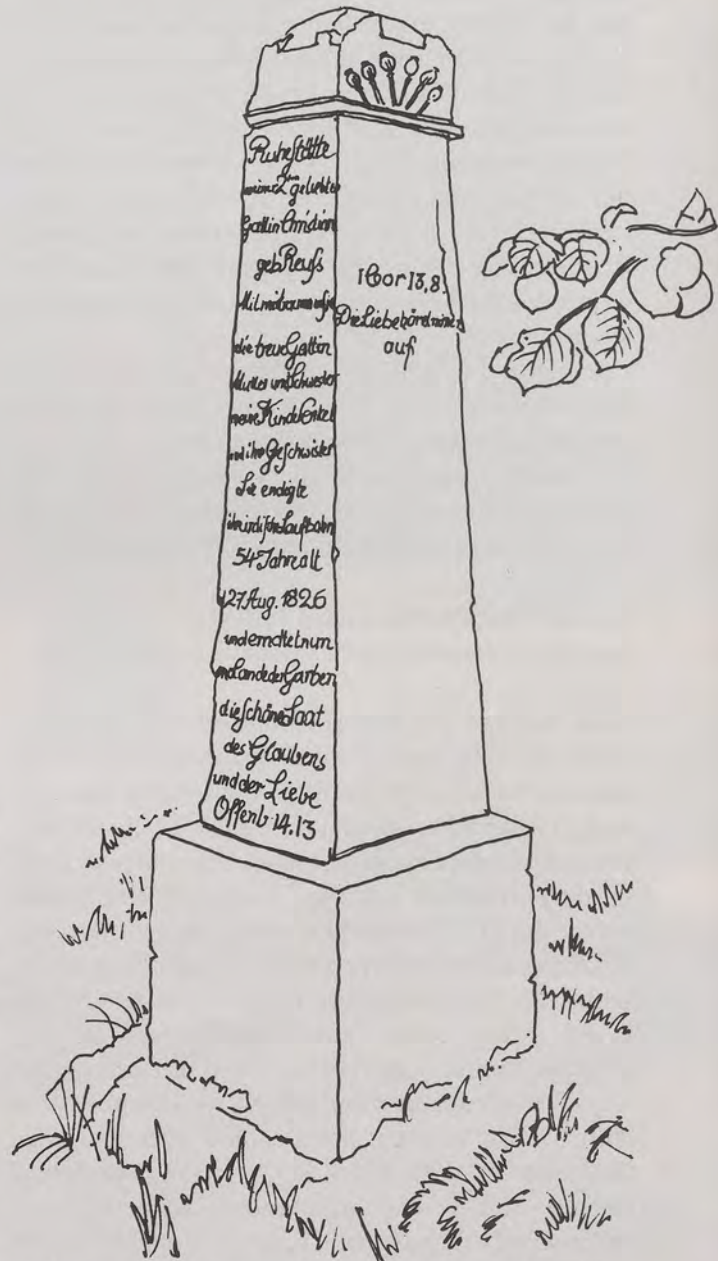 Ruhestätte
meiner 2ten geliebten
Gattin Christian
geb Reuſs
Mit mir
die treue Gattin
Mutter und Schwester
meine Kinder Enkel
und ihre Geſchwister
Sie endigte
ihre irdiſche Laufbahn
54 Jahre alt
d 27 Aug. 1826
und erndtet nun
im Lande der Garben
die ſchöne Saat
des Glaubens
und der Liebe
Offenb 14.13
1 Cor 13,8.
Die Liebe höret nimer
auf